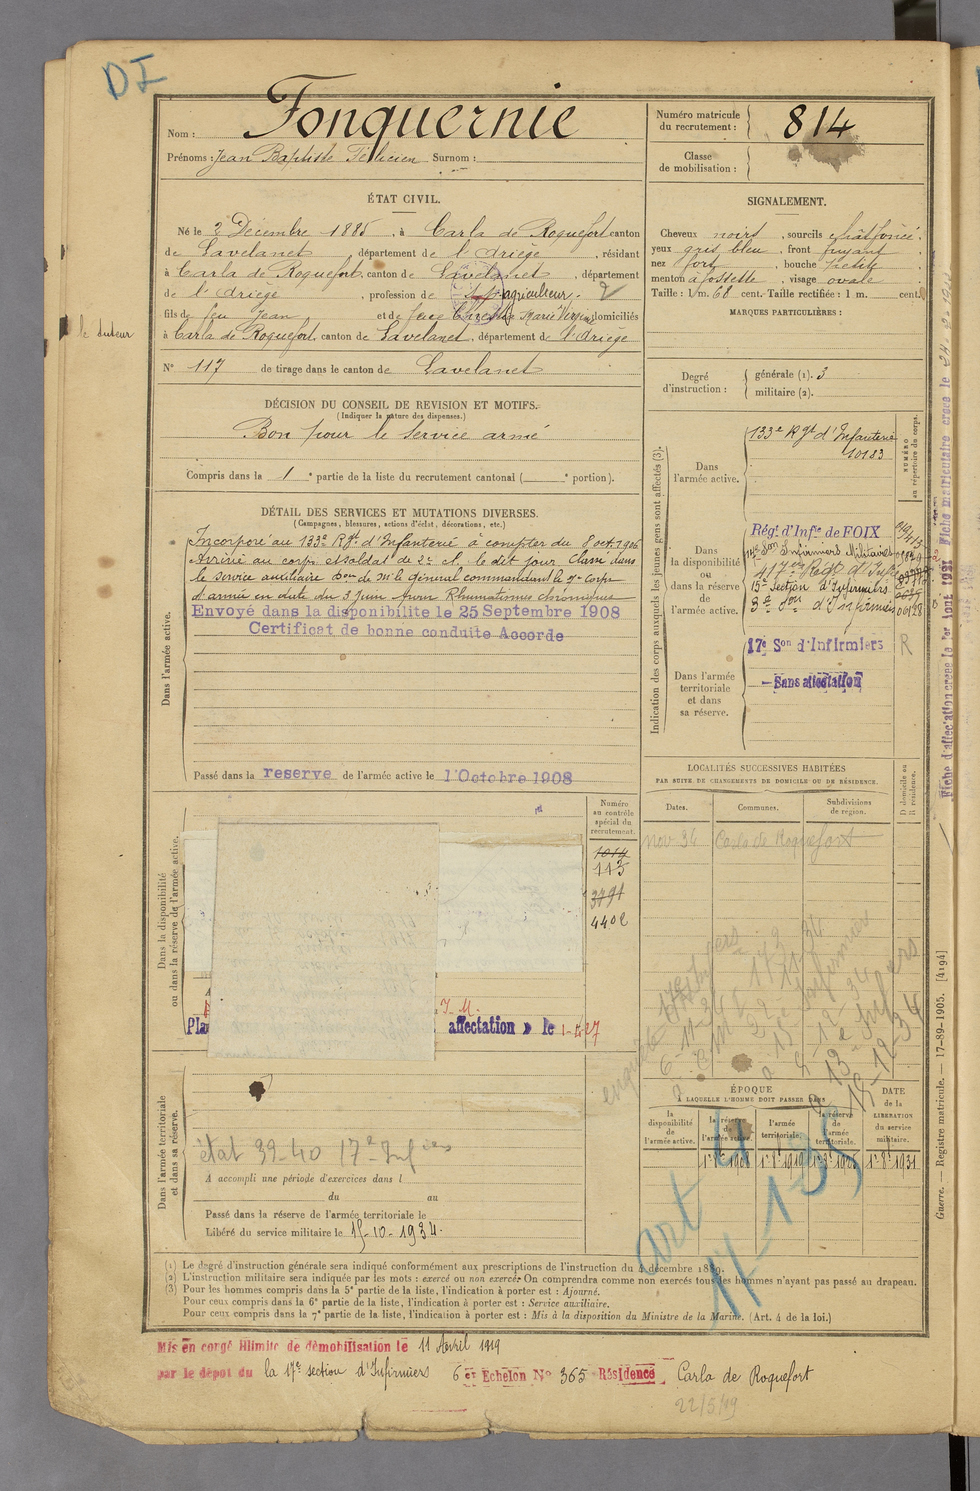 DI
Nom : Fonquernie
Prénoms : Jean Baptiste Félicien Surnom :
ÉTAT CIVIL.
Né le 2 Décembre 1885, à Carla de Roquefort canton
de Lavelanet, département de l'Ariège, résidant
à Carla de Roquefort, canton de Lavelanet, département
de l'Ariège, profession de agriculteur.
fils de feu Jean et de feue Marie Virginie domiciliés
le tuteur
à Carla de Roquefort, canton de Lavelanet, département de l'Ariège
N° 117 de tirage dans le canton de Lavelanet
DÉCISION DU CONSEIL DE REVISION ET MOTIFS.
(Indiquer la nature des dispenses.)
Bon pour le service armé
Compris dans la 1e partie de la liste du recrutement cantonal ( e portion).
DÉTAIL DES SERVICES ET MUTATIONS DIVERSES.
(Campagnes, blessures, actions d'éclat, décorations, etc.)
Dans l'armée active.
Incorporé au 133e Rgt d'Infanterie à compter du 8 oct. 1906
Arrivé au corps et soldat de 2e cl. le dit jour Classé dans
le service auxiliaire Don de Mr le général commandant le 7e Corps
d'armée en date du 3 Juin Rhumatismes chroniques
Envoyé dans la disponibilite le 25 Septembre 1908
Certificat de bonne conduite Accorde
Passé dans la reserve de l'armée active le 1 Octobre 1908
Dans la disponibilité
ou dans la réserve de l'armée active.
Numéro
au contrôle
spécial du
recrutement.
1014
113
3791
4402
Pla
affectation » le 1-4-27
Dans l'armée territoriale
et dans sa réserve.
état 39-40 17e Infiers
A accompli une période d'exercices dans l
du au
Passé dans la réserve de l'armée territoriale le
Libéré du service militaire le 15-10-1934.
Numéro matricule
du recrutement : 814
Classe
de mobilisation :
SIGNALEMENT.
Cheveux noirs, sourcils chât foncé,
yeux gris bleu, front fuyant,
nez fort, bouche Petite
menton à fossette, visage ovale
Taille : 1m. 68 cent. Taille rectifiée : 1 m. cent.
MARQUES PARTICULIÈRES :
Degré
d'instruction :
générale (1). 3
militaire (2).
Indication des corps auxquels les jeunes gens sont affectés (3).
NUMÉRO
au répertoire du corps.
Dans
l'armée active.
133e Rgt d'Infanterie
10183
Dans
la disponibilité
ou
dans la réserve
de
l'armée active.
Régt d'Infie de FOIX
Son Infirmiers Militaires
417e Regt d'Infie
15e Section d'Infirmiers
3e Son d'Infirmiers 00128
Dans l'armée
territoriale
et dans
sa réserve.
17e Son d'Infirmiers R
– Sans affectation
LOCALITÉS SUCCESSIVES HABITÉES
PAR SUITE DE CHANGEMENTS DE DOMICILE OU DE RÉSIDENCE.
Dates.
Communes.
Subdivisions
de region.
D domicile ou
R résidence.
nov 34 Carla de Roquefort
ÉPOQUE
A LAQUELLE L'HOMME DOIT PASSER DANS
la
disponibilité
de
l'armée active.
la réserve
de
l'armée active.
l'armée
territoriale.
la réserve
de
l'armée
territoriale.
DATE
de la
LIBÉRATION
du service
militaire.
art 4
(1) Le degré d'instruction générale sera indiqué conformément aux prescriptions de l'instruction du 4 décembre 1889.
(2) L'instruction militaire sera indiquée par les mots : exercé ou non exercé. On comprendra comme non exercés tous les hommes n'ayant pas passé au drapeau.
(3) Pour les hommes compris dans la 5e partie de la liste, l'indication à porter est : Ajourné.
Pour ceux compris dans la 6e partie de la liste, l'indication à porter est : Service auxiliaire.
Pour ceux compris dans la 7e partie de la liste, l'indication à porter est : Mis à la disposition du Ministre de la Marine. (Art. 4 de la loi.)
Mis en congé illimité de démobilisation le 11 Avril 1919
par le dépot du la 17e section d'Infirmiers 6e Echelon N° 365 Résidence Carla de Roquefort
22/5/19
Guerre. — Registre matricule. — 17-89-1905. [4194]